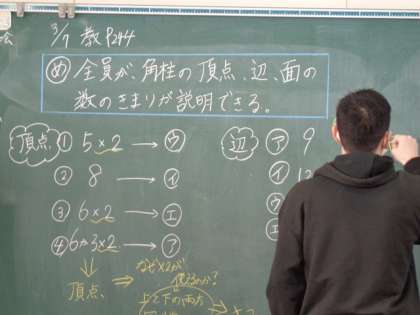 3/7 教P244
め 全員が、角柱の頂点、辺、面の
数のきまりが説明できる。
頂点 ① 5×2 → ウ
② 8 → イ
③ 6×2 → エ
④ 6か3×2 → ア
頂点
なぜ×2が
使えるのか?
上と下の両方
辺 ア 9
イ 1
ウ
エ